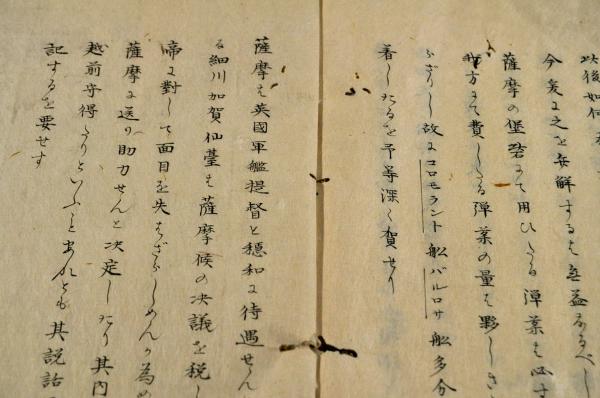 以後如何
今爰に之を弁解するは無益なるべし
薩摩の堡砦にて用ひたる弾薬は必す
我方にて費したる弾薬の量も夥しき
ふぎりし故にコロモラント船バルロサ船多分
着したるを予等深く賀せり
薩摩は英國軍艦提督と穏和に待遇せん
る細川加賀仙臺は薩摩候の决議を税し
帝に對して面目を失はざらしめんか為め
薩摩に送り助力せんと决定したり其内
越前守得たりといふことあれとも其説話
記するを要せす